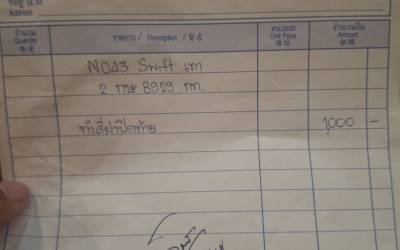 Address
จำนวน รายการ / Description / 貨名 หน่วยละ จำนวนเงิน
Quantity Unit Price Amount
數量
Swift เทา
2 กษ 8929 กท.
ทำสีฝาปิดท้าย 1,000 -